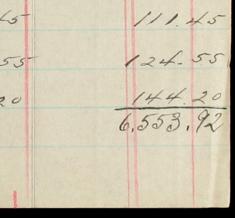 45 111.45
55 124.55
20 144.20
6,553.92